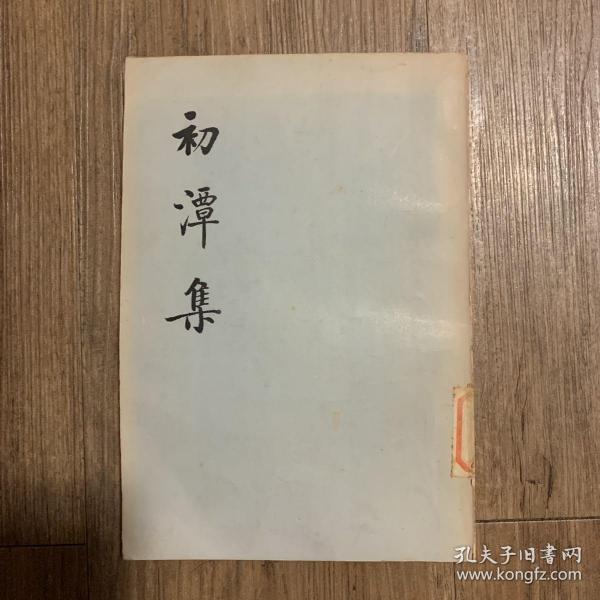 初潭集
孔夫子旧書网
www.kongfz.com